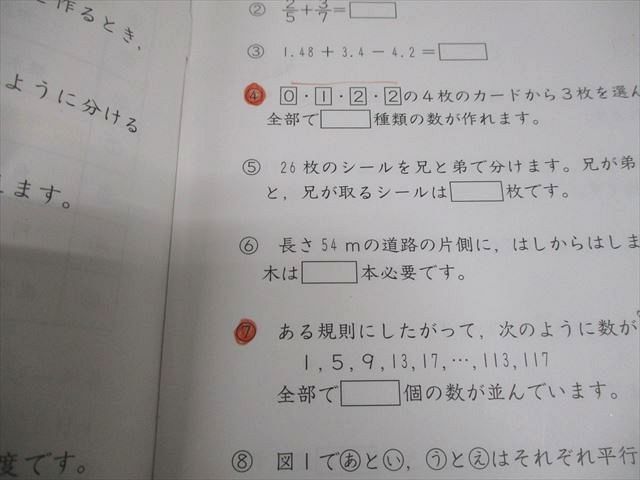 作るとき,
ように分ける
ます。
度です。
② 2/5+3/7=□
③ 1.48+3.4-4.2=□
④ 0・1・2・2の4枚のカードから3枚を選ん
全部で□種類の数が作れます。
⑤ 26枚のシールを兄と弟で分けます。兄が弟
と,兄が取るシールは□枚です。
⑥ 長さ54mの道路の片側に,はしからはしま
木は□本必要です。
⑦ ある規則にしたがって,次のように数が
1,5,9,13,17,…,113,117
全部で□個の数が並んでいます。
⑧ 図1であとい,うとえはそれぞれ平行